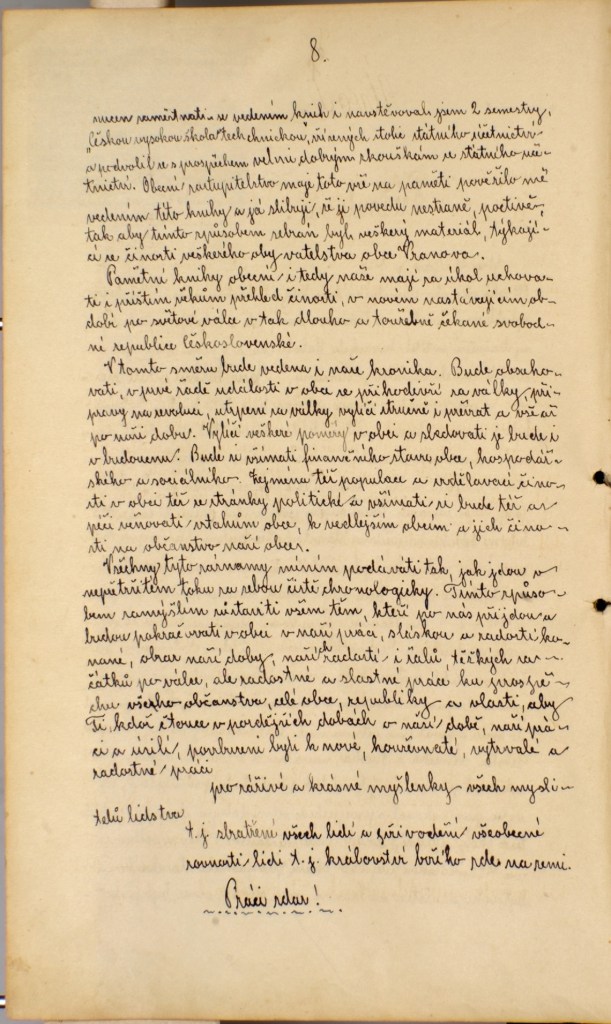 8.
nucen zaměstnati se vedením knih i navštěvoval jsem 2 semestry,
"českou vysokou školu techchnickou", řízených stolic státního účetnictví
a podvolil se s prospěchem velmi dobrým zkouškám ze státního úče-
tnictví. Obecní zastupitelstvo maje toto vše na paměti pověřilo mě
vedením této knihy a já slibuji, že ji povedu nestraně, poctivě,
tak aby tímto způsobem sebrán byl, veškerý materiál, týkají-
cí se činosti veškerého oby vatelstva obce Vranova.
Pamětní knihy obecní i tedy naše mají za úkol uchova-
ti i příštím věkům přehled činosti, v novém nastávajícím ob-
dobí po světové válce v tak dlouho a toužebně čekané svobod-
né republice Československé.
V tomto směru bude vedena i naše kronika. Bude obsaho-
vati, v prvé řadě události v obci se přihodivší za války, pří-
pravy na revoluci, utrpení za války vylíčí stručně i převrat a vše až
po naši dobu. Vylíčí veškeré poměry v obci a sledovati je bude i
v budoucnu. Bude si všímati finančního stavu obce, hospodář-
ského a sociálního. Zejména též populace a vzdělavací čino-
sti v obci též ze stránky politické a všímati si bude též a
péči věnovati vztahům obce, k vedlejším obcím a jich čino-
sti na občanstvo naší obce.
Všechny tyto záznamy míním podávati tak, jak jdou v
nepřetržitém toku za sebou čistě chronologicky. Tímto způso-
bem zamýšlím zůstaviti všem těm, kteří po nás přijdou a
budou pokračovati v obci v naší práci, s láskou a radostí ko-
nané, obraz naší doby, našich radostí i žalů, těžkých za-
čátků po válce, ale radostné a slastné práce ku prospě-
chu všeho občanstva, celé obce, republiky a vlasti, aby
Ti, kdož čtouce v pozdějších dobách o naší době, naší prá-
ci a úsilí, povzbuzeni byli k nové, houževnaté, vytrvalé a
radostné práci
pro zářivé a krásné myšlenky všech mysli-
telů lidstva
t. j. sbratření všech lidí a přivodění všeobecné
rovnosti lidí t. j. království božího zde na zemi.
Práci zdar!